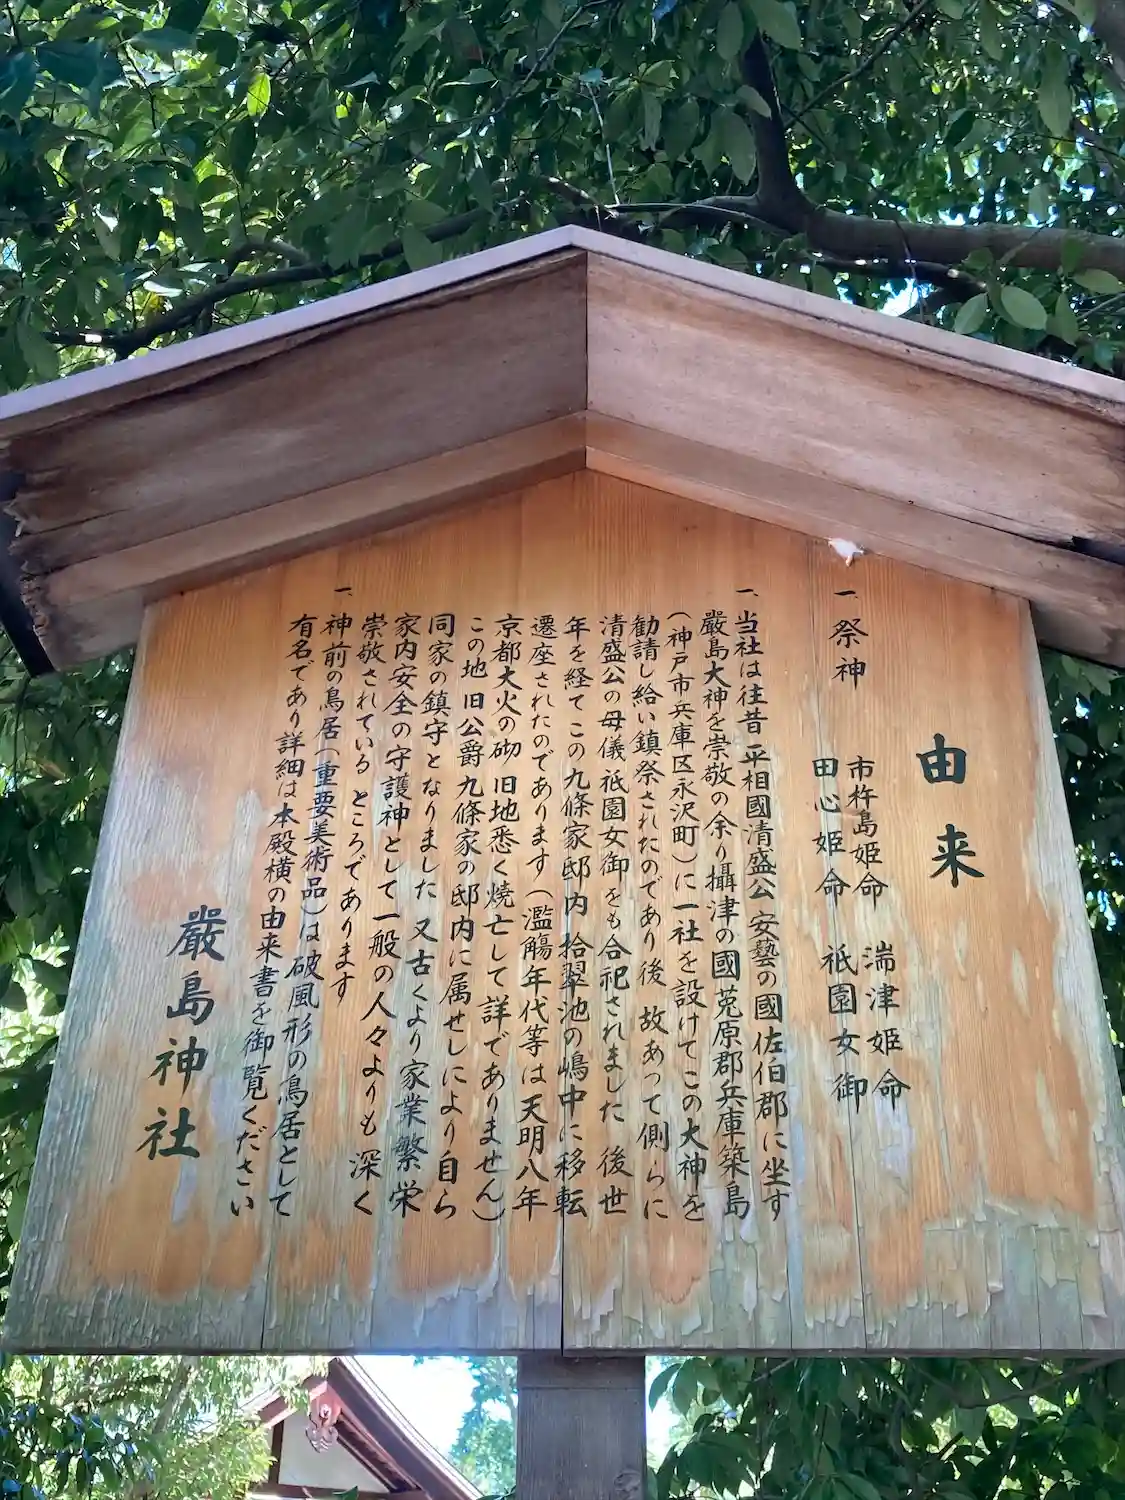 由来
一、祭神
市杵島姫命 湍津姫命
田心姫命 祇園女御
一、当社は往昔 平相國清盛公 安藝の國佐伯郡に坐す
嚴島大神を崇敬の余り攝津の國菟原郡兵庫築島
(神戸市兵庫区永沢町)に一社を設けてこの大神を
勧請し給い鎮祭されたのであり後 故あって側らに
清盛公の母儀祇園女御をも合祀されました 後世
年を経てこの九條家邸内拾翠池の嶋中に移転
遷座されたのであります(濫觴年代等は天明八年
京都大火の砌 旧地悉く焼亡して詳でありません)
この地 旧公爵九條家の邸内に属せしにより自ら
同家の鎮守となりました 又古くより家業繁栄
家内安全の守護神として一般の人々よりも深く
崇敬されている ところであります
一、神前の鳥居(重要美術品)は破風形の鳥居として
有名であり詳細は本殿横の由来書を御覧ください
嚴島神社